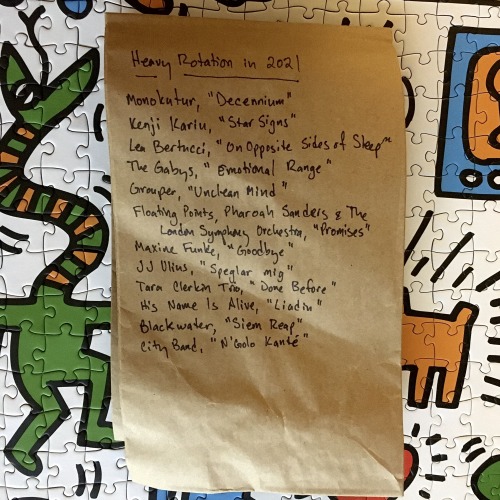 Heavy Rotation in 2021
Monokultur, "Decennium"
Kenji Kariu, "Star Signs"
Lea Bertucci, "On Opposite Sides of Sleep"
The Gabys, "Emotional Range"
Grouper, "Unclean Mind"
Floating Points, Pharoah Sanders & The
London Symphony Orchestra, "Promises"
Maxine Funke, "Goodbye"
JJ Ulius, "Speglar mig"
Tara Clerkin Trio, "Done Before"
His Name Is Alive, "Liadin"
Blackwater, "Siem Reap"
City Band, "N'Golo Kanté"